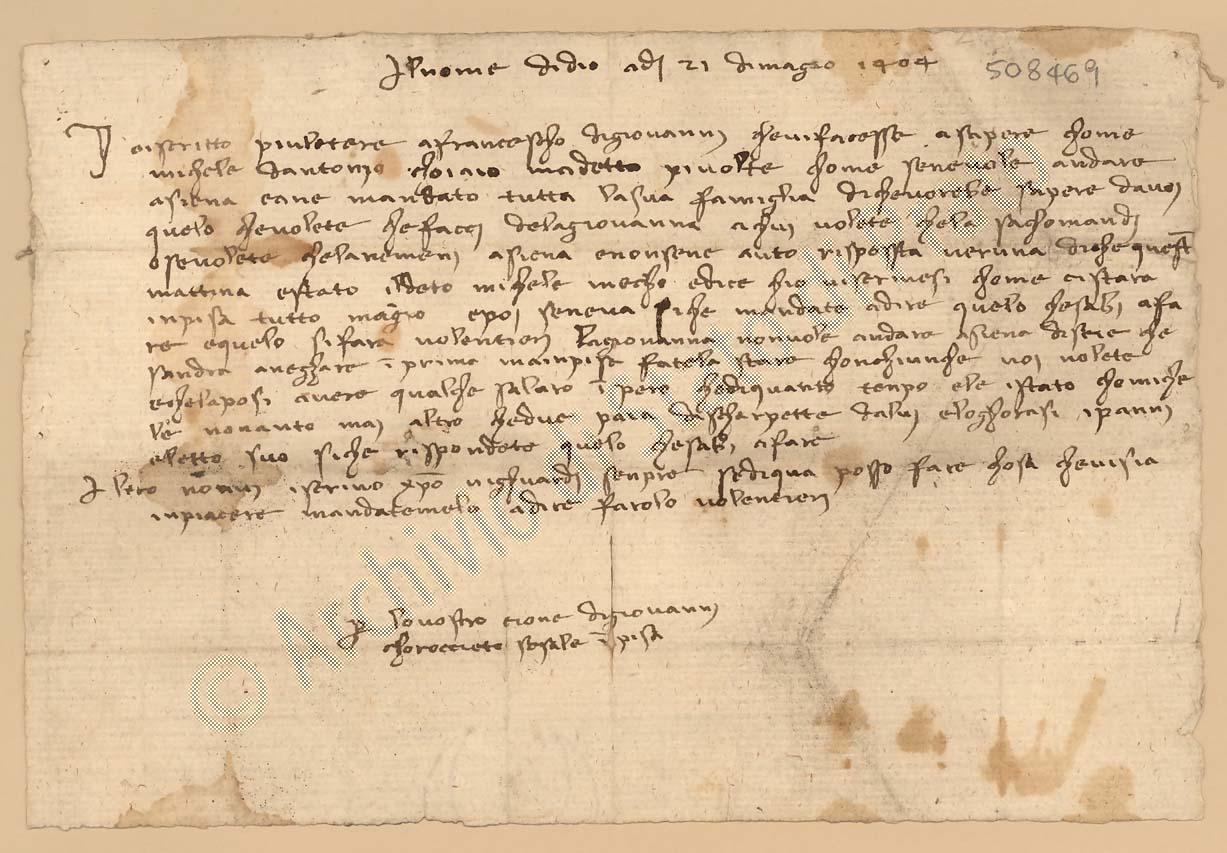 Al nome di dio adj 21 di magio 1404
508469
I o iscritto piu letere a francescho di giovannj che vi facesse a sapere chome
michele d antonio choiaio m a detto piu volte chome se ne vole andare
a siena e ane mandato tutta la sua famiglia di che vorebe sapere da voj
quelo che volete che faccj de la giovanna a chuj volete che la rachomandj
o se volete che la ne menj a siena e non se n e auto risposta veruna di che quest
mattina e stato il deto michele mecho e dice ch io vi scrivesi chome ci stara
in pisa tutto magio e poj se ne va siche mandate a dire quelo ch e s abj a fa
re e quelo si fara volentierj la giovanna non vole andare a siena dise che
andra a neghare i prima ma in pise fate la stare chon chiunche voj volete
e che la posi avere qualche salaro i pero che di quanto tenpo ele istato cho miche
le non a auto maj altro che due paia di scharpette da luj e loghorasi i pannj
e letto suo siche rispondete quelo che s abj a fare
A ltro non vj iscrivo xpo vi ghuardj senpre se di qua posso fare chosa che vi sia
in piacere mandatemelo a dire farolo volentierj
p lo vostro cione di giovannj
i pisa
© Archivio di Stato di Prato